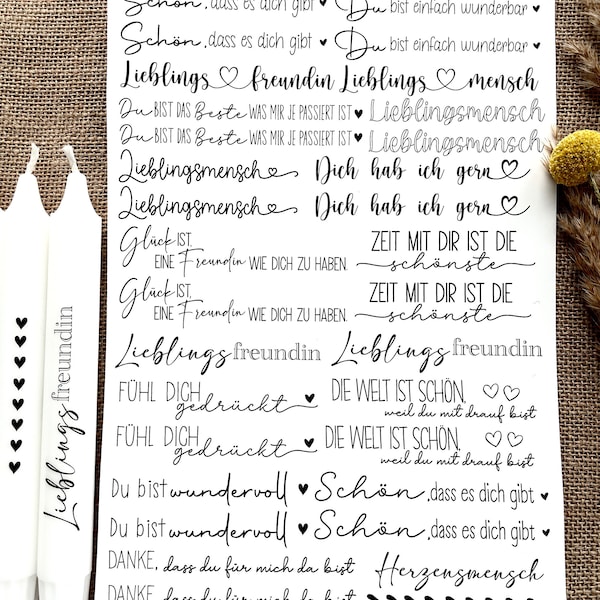 Schön, dass es dich gibt ♥ Du bist einfach wunderbar ♥
Schön, dass es dich gibt ♥ Du bist einfach wunderbar ♥
Lieblings♡freundin Lieblings♡mensch
Du BIST DAS Beste WAS MIR JE PASSIERT IST ♥ Lieblingsmensch
Du BIST DAS Beste WAS MIR JE PASSIERT IST ♥ Lieblingsmensch
Lieblingsmensch♡ Dich hab ich gern♡
Lieblingsmensch♡ Dich hab ich gern♡
Glück IST,
EINE Freundin WIE DICH ZU HABEN.
ZEIT MIT DIR IST DIE
schönste
Glück IST,
EINE Freundin WIE DICH ZU HABEN.
ZEIT MIT DIR IST DIE
schönste
Lieblingsfreundin Lieblingsfreundin
FÜHL DICH
gedrückt ♥
DIE WELT IST SCHÖN, ♡♡
weil du mit drauf bist
FÜHL DICH
gedrückt ♥
DIE WELT IST SCHÖN, ♡♡
weil du mit drauf bist
Du bist wundervoll ♥ Schön, dass es dich gibt ♥
Du bist wundervoll ♥ Schön, dass es dich gibt ♥
DANKE, dass du für mich da bist Herzensmensch
DANKE, dass du für mich da bist
Lieblingsfreundin